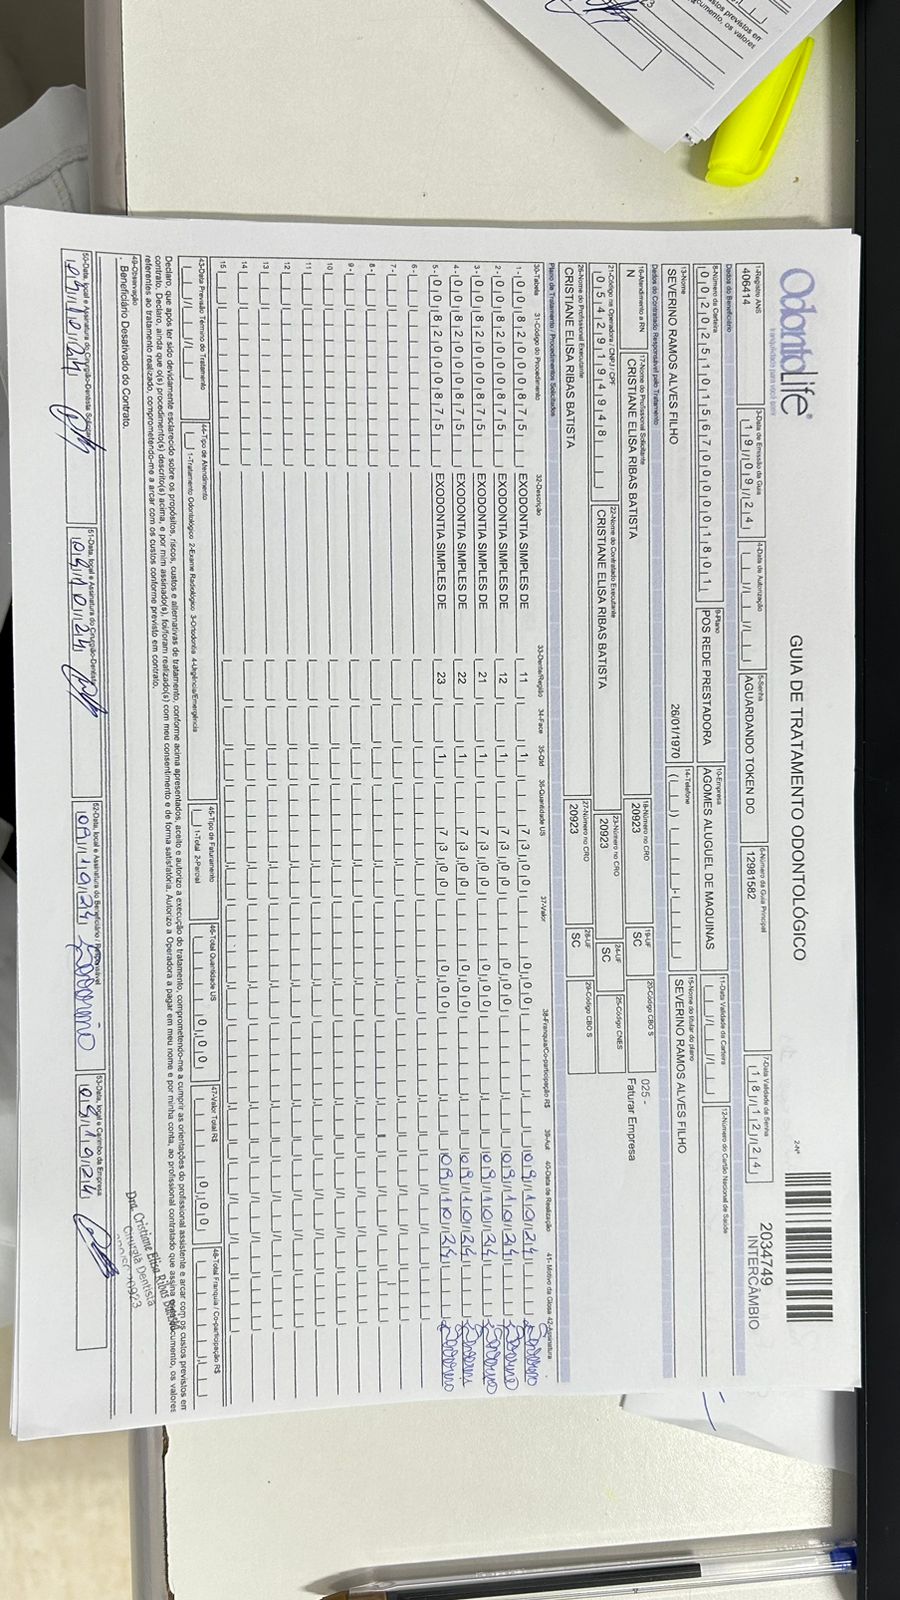 OdontoLife®
tranquilidade para você sorrir
GUIA DE TRATAMENTO ODONTOLÓGICO
2-Nº
2034749
INTERCÂMBIO
1-Registro ANS
406414
3-Data de Emissão da Guia
19/09/24
4-Data de Autorização
5-Senha
AGUARDANDO TOKEN DO
6-Número da Guia Principal
12981582
7-Data Validade da Senha
18/12/24
Dados do Beneficiário
8-Número da Carteira
00202511015670000001801
9-Plano
POS REDE PRESTADORA
10-Empresa
AGOMES ALUGUEL DE MAQUINAS
11-Data Validade da Carteira
12-Número do Cartão Nacional de Saúde
13-Nome
SEVERINO RAMOS ALVES FILHO
26/01/1970
14-Telefone
15-Nome do titular do plano
SEVERINO RAMOS ALVES FILHO
Dados do Contratado Responsável pelo Tratamento
16-Atendimento a RN
N
17-Nome do Profissional Solicitante
CRISTIANE ELISA RIBAS BATISTA
18-Número no CRO
20923
19-UF
SC
20-Código CBO S
025 -
Faturar Empresa
21-Código na Operadora / CNPJ / CPF
05429194948
22-Nome do Contratado Executante
CRISTIANE ELISA RIBAS BATISTA
23-Número no CRO
20923
24-UF
SC
25-Código CNES
26-Nome do Profissional Executante
CRISTIANE ELISA RIBAS BATISTA
27-Número no CRO
20923
28-UF
SC
29-Código CBO S
Plano de Tratamento / Procedimentos Solicitados
30-Tabela 31-Código do Procedimento 32-Descrição 33-Dente/Região 34-Face 35-Qtd 36-Quantidade US 37-Valor 38-Franquia/Co-participação R$ 39-Aut 40-Data de Realização 41- Motivo da Glosa 42-Assinatura
1- 00 82000875 EXODONTIA SIMPLES DE 11 1 73,00 0,00 09/10/24 Severino
2- 00 82000875 EXODONTIA SIMPLES DE 12 1 73,00 0,00 09/10/24 Severino
3- 00 82000875 EXODONTIA SIMPLES DE 21 1 73,00 0,00 09/10/24 Severino
4- 00 82000875 EXODONTIA SIMPLES DE 22 1 73,00 0,00 09/10/24 Severino
5- 00 82000875 EXODONTIA SIMPLES DE 23 1 73,00 0,00 09/10/24 Severino
6-
7-
8-
9-
10
11
12
13
14
15
43-Data Previsão Término do Tratamento
44-Tipo de Atendimento
1-Tratamento Odontológico 2-Exame Radiológico 3-Ortodontia 4-Urgência/Emergência
45-Tipo de Faturamento
1-Total 2-Parcial
46-Total Quantidade US
0,00
47-Valor Total R$
0,00
48-Total Franquia / Co-participação R$
Declaro, que após ter sido devidamente esclarecido sobre os propósitos, riscos, custos e alternativas de tratamento, conforme acima apresentados, aceito e autorizo a execução do tratamento, comprometendo-me a cumprir as orientações do profissional assistente e arcar com os custos previstos em
contrato. Declaro, ainda que o(s) procedimento(s) descrito(s) acima, e por mim assinado(s), foi/foram realizado(s) com meu consentimento e de forma satisfatória. Autorizo a Operadora a pagar em meu nome e por minha conta, ao profissional contratado que assina esse documento, os valores
referentes ao tratamento realizado, comprometendo-me a arcar com os custos conforme previsto em contrato.
49-Observação
. Beneficiário Desativado do Contrato.
Dra. Cristiane Elisa Ribas Batista
Cirurgiã Dentista
CRO/SC 20923
50-Data, local e Assinatura do Cirurgião-Dentista Solicitante
09/10/24
51-Data, local e Assinatura do Cirurgião-Dentista
09/10/24
52-Data, local e Assinatura do Beneficiário / Responsável
09/10/24 Severino
53-Data, local e Carimbo da Empresa
09/10/24